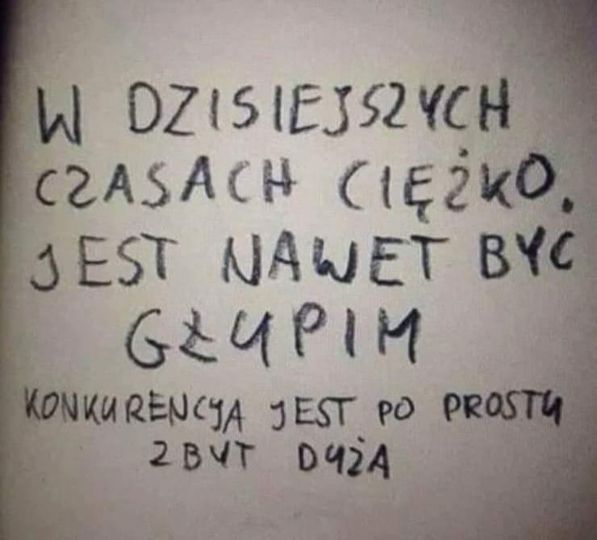 W DZISIEJSZYCH
CZASACH CIĘŻKO.
JEST NAWET BYC
GŁUPIM
KONKURENCJA JEST PO PROSTU
ZBYT DUŻA